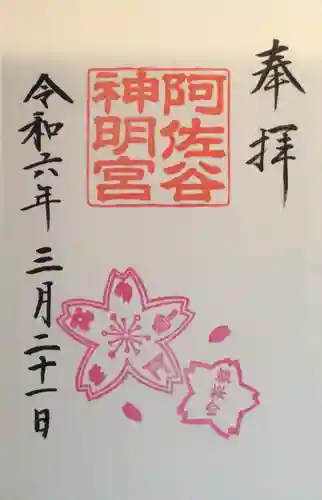 奉拝
阿佐谷
神明宮
令和六年 三月二十一日